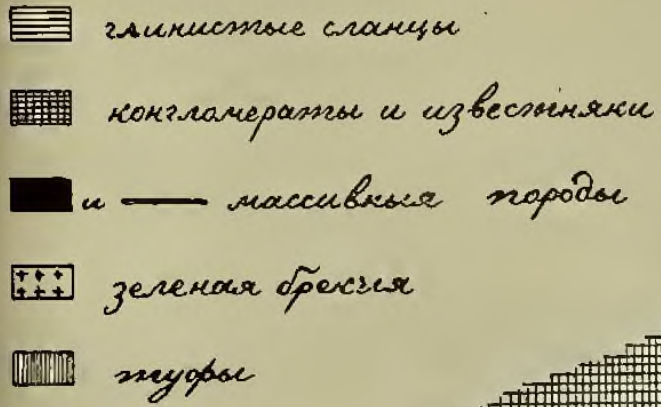 глинистые сланцы
конгломераты и известняки
и массивныя породы
зеленая брекчия
туфы